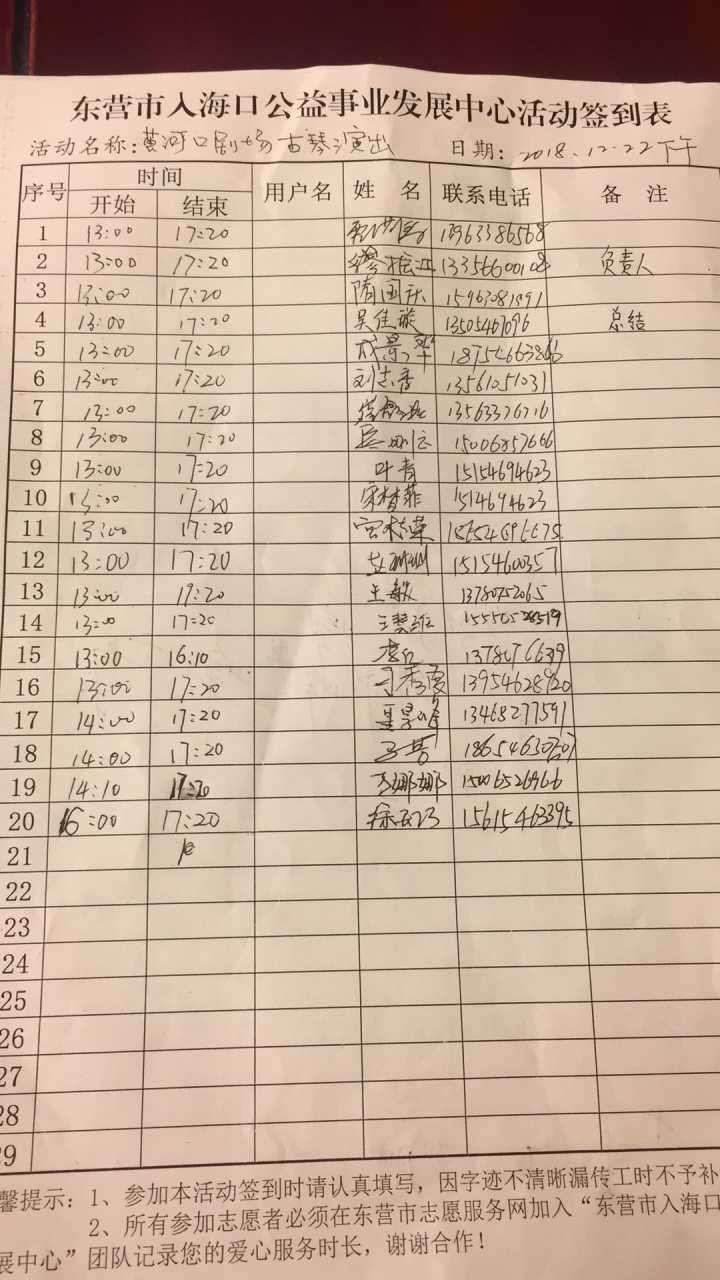 东营市入海口公益事业发展中心活动签到表
活动名称：黄河口剧场古琴演出 日期：2018.12.22下午
序号 时间 用户名 姓名 联系电话 备注
开始 结束
1 13:00 17:20 13963386568
2 13:00 17:20 负责人
3 13:00 17:20 隋国庆
4 13:00 17:20 吴佳璇 13505467096 总结
5 13:00 17:20 成景华
6 13:00 17:20 刘志香 13561051031
7 13:00 17:20 13563376716
8 13:00 17:20 15006857666
9 13:00 17:20 叶青 15154694623
10 13:00 17:20 宋梦菲 1514694623
11 13:00 17:20
12 13:00 17:20 1515460357
13 13:00 19:20 王敏 13780752065
14 13:00 17:20
15 13:00 16:10 李红
16 13:00 17:20 13954628920
17 14:00 17:20 13468277591
18 14:00 17:20
19 14:10 17:20 王娜娜 15006526966
20 16:00 17:20 15615463395
21
22
23
24
25
26
27
28
29
馨提示：1、参加本活动签到时请认真填写，因字迹不清晰漏传工时不予补
2、所有参加志愿者必须在东营市志愿服务网加入“东营市入海口
展中心”团队记录您的爱心服务时长，谢谢合作！